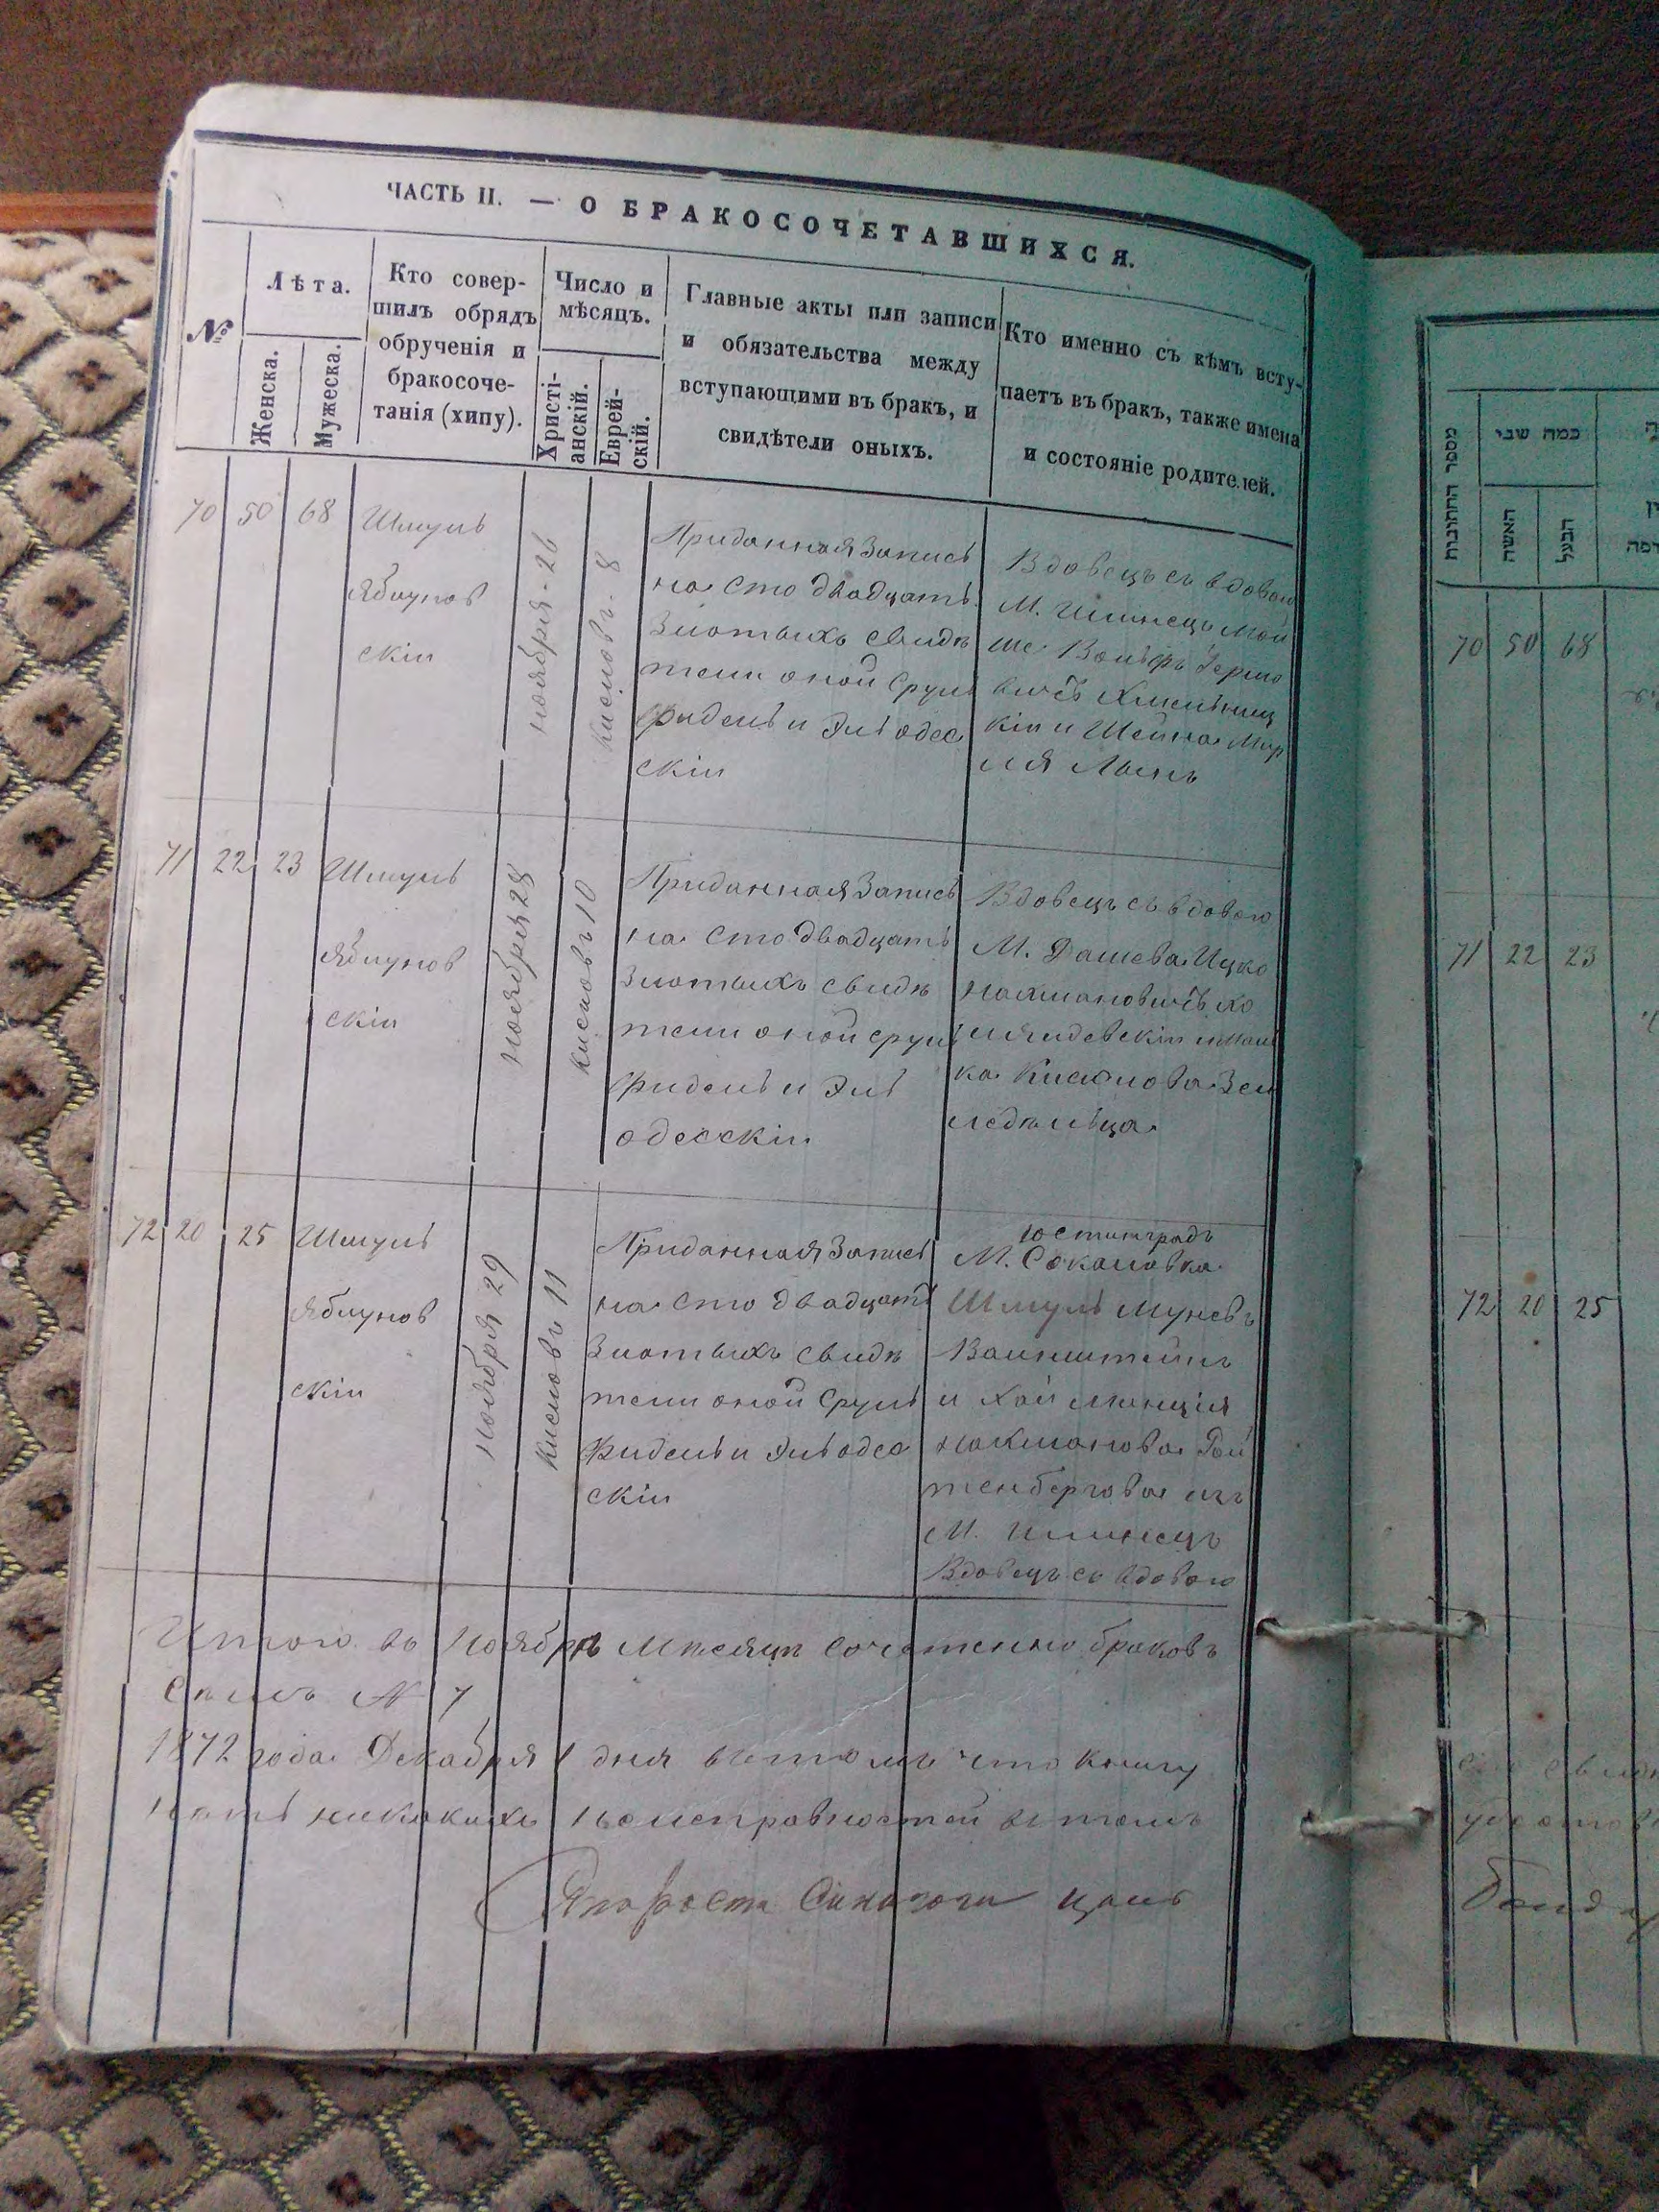 ЧАСТЬ II. — О БРАКОСОЧЕТАВШИХСЯ.
№
Лѣта.
Женска.
Мужеска.
Кто совер-
шилъ обрядъ
обрученія и
бракосоче-
танія (хипу).
Число и
мѣсяцъ.
Христі-
анскій.
Еврей-
скій.
Главные акты или записи
и обязательства между
вступающими въ бракъ, и
свидѣтели оныхъ.
Кто именно съ кѣмъ всту-
паетъ въ бракъ, также имена
и состояніе родителей.
70 50 68
Шмуль
Яблунов
скій
Ноября 26
Кислевъ 8
Приданная Запись
на сто двадцать
Злотыхъ свидѣ
тели оной Сруль
Фидель и Эль одес
скій
Вдовецъ съ вдовою
М. Илинецъ Мой
ше Вольфъ Гершо
вичъ Хмельниц
кій и Шейна Мир
ля
71 22 23
Шмуль
Яблунов
скій
Ноября 28
Кислевъ 10
Приданная Запись
на сто двадцать
Злотыхъ свидѣ
тели оной Сруль
Фидель и Эль
одесскій
Вдовецъ съ вдовою
М. Дашева Ицко
Нахмановичъ
ка Зем
ледѣльца
72 20 25
Шмуль
Яблунов
скій
Ноября 29
Кислевъ 11
Приданная Запись
на сто двадцать
Злотыхъ свидѣ
тели оной Сруль
Фидель и Эль одес
скій
Юстинградъ
М. Соколовка
Шмуль
Вайнштейнъ
и Хая
Нахманова Рой
тенбергова изъ
М. Илинецъ
Вдовецъ съ вдовою
Итого въ Ноябрѣ Месяцѣ сочетанно браковъ
семь № 7
1872 года Декабря 1 дня въ томъ что книгу
нетъ никакихъ неисправностей въ томъ
Староста Синагоги
מספר החתונות
כמה שני
האשה
הבעל
70 50 68
71 22 23
72 20 25